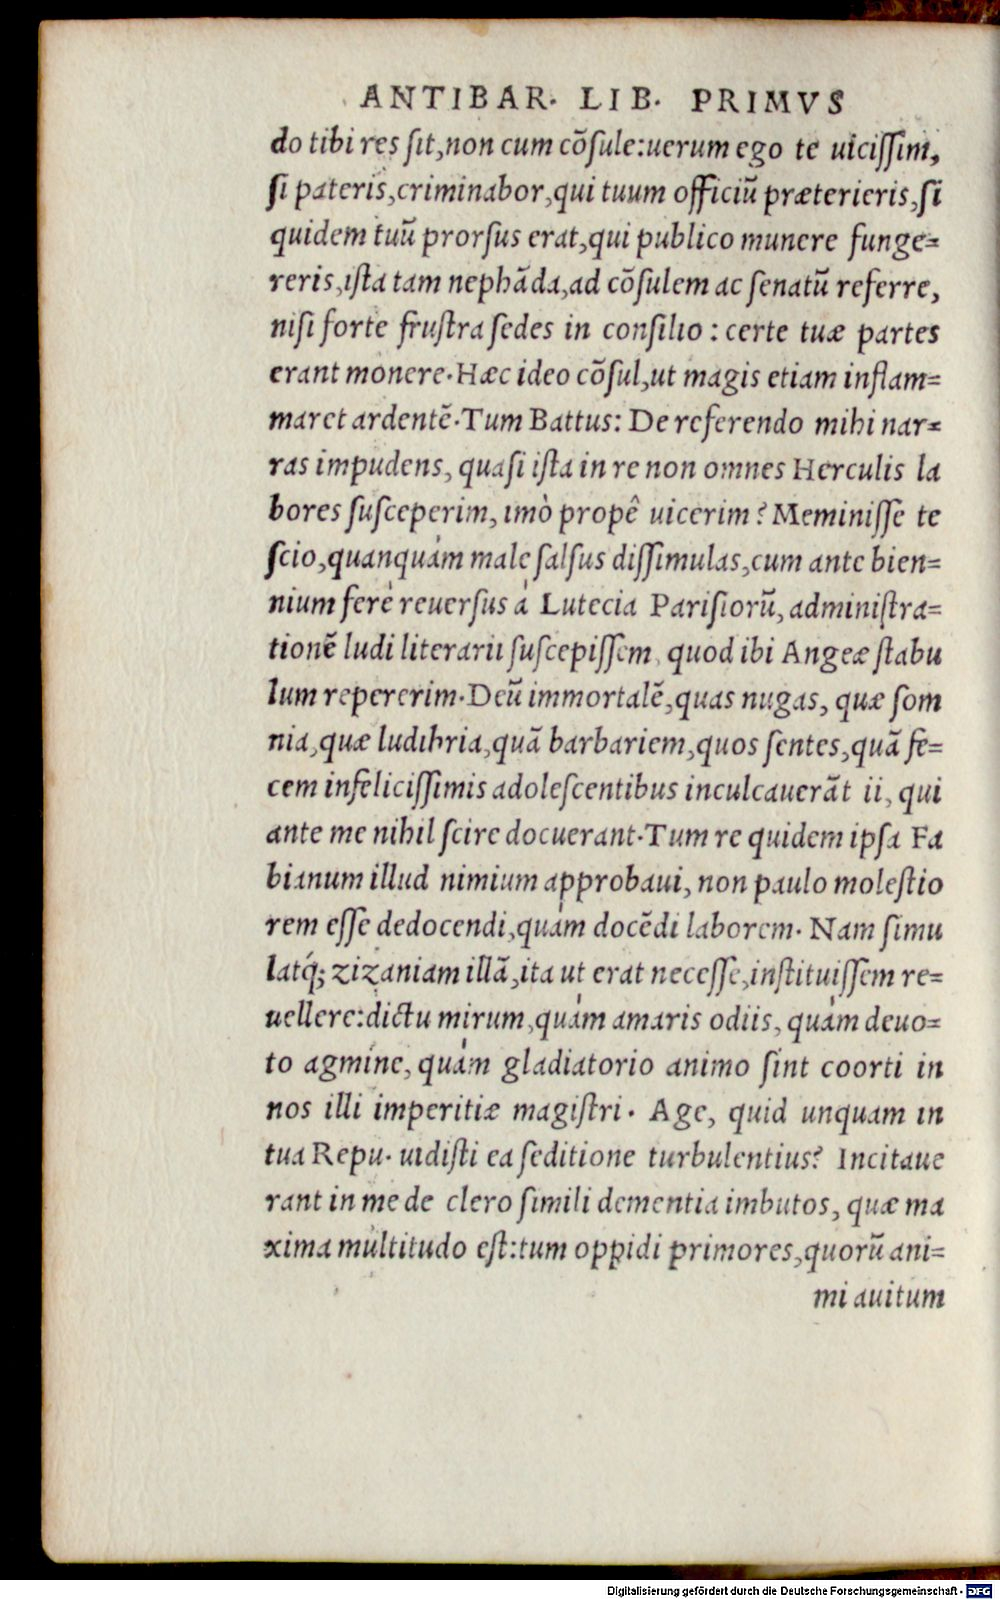 ANTIBAR. LIB. PRIMVS
do tibi res ſit,non cum cõſule:uerum ego te uiciſſim,
ſi pateris,criminabor,qui tuum officiũ præterieris,ſi
quidem tuũ prorſus erat,qui publico munere funge=
reris,iſta tam nephãda,ad cõſulem ac ſenatũ referre,
niſi forte fruſtra ſedes in conſilio : certe tuæ partes
erant monere.Hæc ideo cõſul,ut magis etiam inflam=
maret ardentẽ.Tum Battus: De referendo mihi nar=
ras impudens, quaſi iſta in re non omnes Herculis la
bores ſuſceperim, imò propê uicerim? Meminiſſe te
ſcio,quanquàm male ſalſus diſſimulas,cum ante bien=
nium ferè reuerſus à Lutecia Pariſiorũ, adminiſtra=
tionẽ ludi literarii ſuſcepiſſem, quod ibi Angeæ ſtabu
lum repererim.Deũ immortalẽ,quas nugas, quæ ſom
nia,quæ ludibria,quã barbariem,quos ſentes,quã fe=
cem infeliciſſimis adoleſcentibus inculcauerãt ii, qui
ante me nihil ſcire docuerant.Tum re quidem ipſa Fa
bianum illud nimium approbaui, non paulo moleſtio
rem eſſe dedocendi,quàm docẽdi laborem. Nam ſimu
latq́; zizaniam illã,ita ut erat neceſſe,inſtituiſſem re=
uellere:dictu mirum,quàm amaris odiis, quàm deuo=
to agmine, quàm gladiatorio animo ſint coorti in
nos illi imperitiæ magiſtri. Age, quid unquam in
tua Repu. uidiſti ea ſeditione turbulentius? Incitaue
rant in me de clero ſimili dementia imbutos, quæ ma
xima multitudo eſt:tum oppidi primores,quorũ ani=
mi auitum
Digitalisierung gefördert durch die Deutsche Forschungsgemeinschaft - DFG